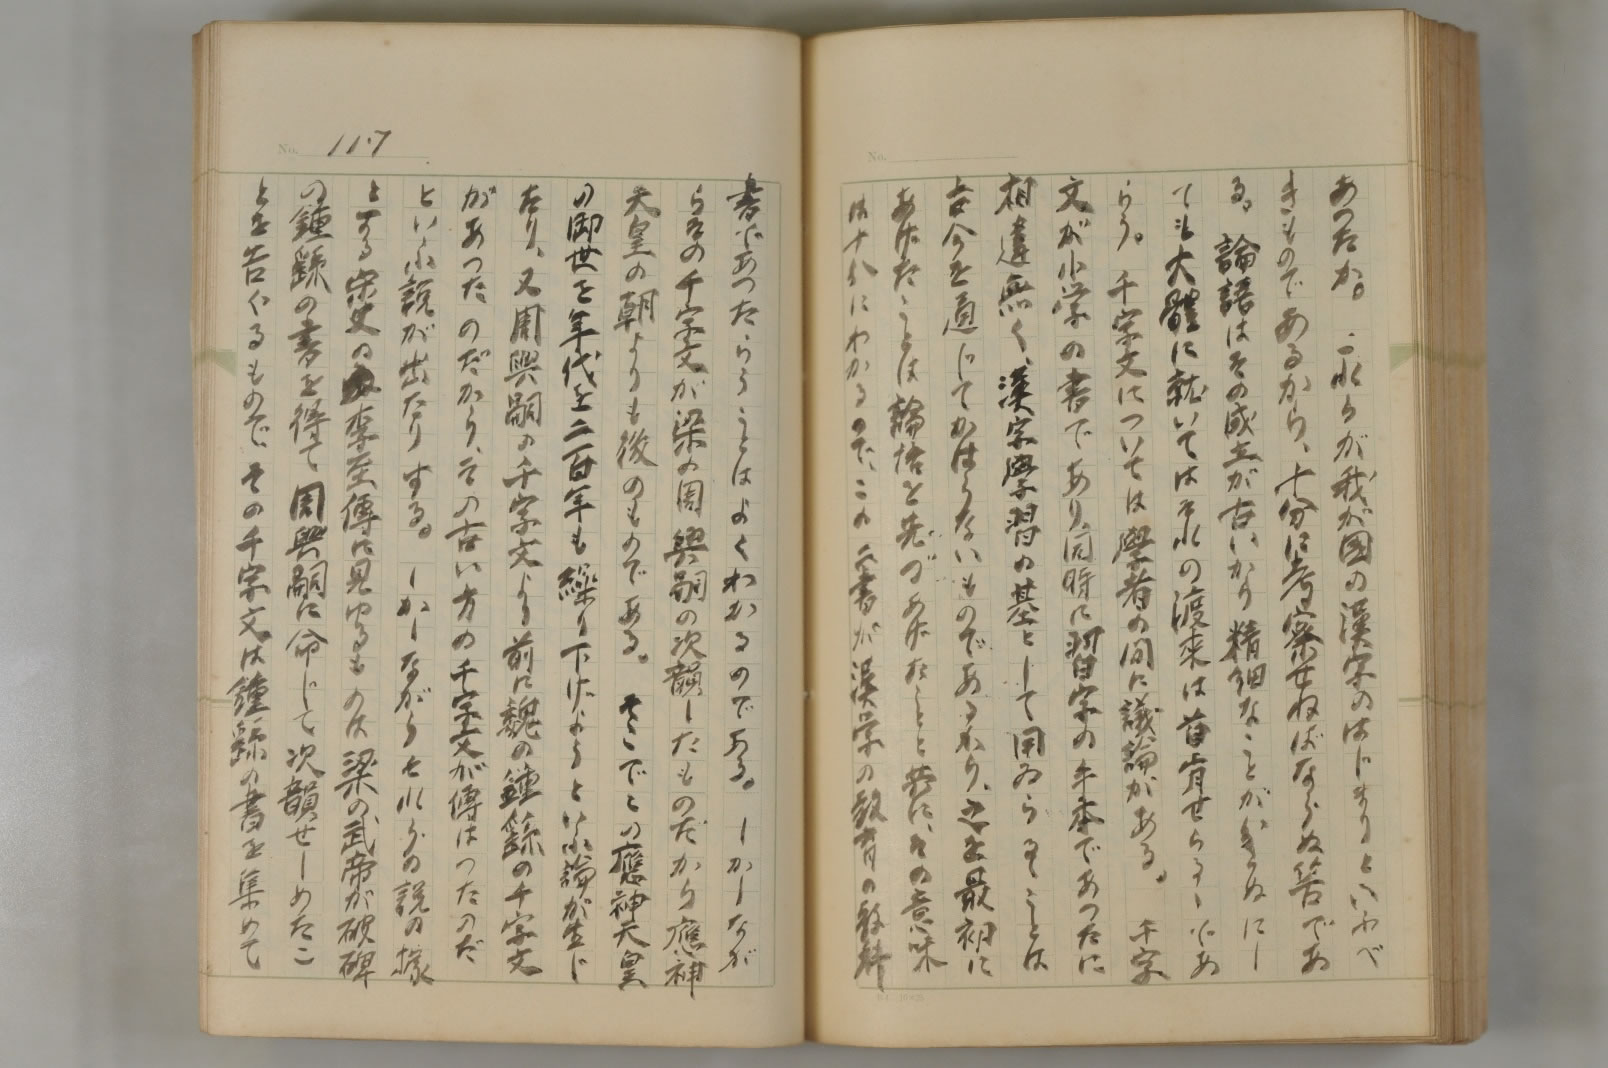 あつたか。これらが我が国の漢字のはじまりといふべ
きものであるから、十分に考察せねばならぬ筈であ
る。論語はその成立が古いから精細なことがきめにし
ても大體に就いてはそれの渡來は首肯せらるゝであ
らう。千字文については學者の間に議論がある。千字
文が小学の書であり、同時に習字の手本であつたに
相違無く、漢字學習の基として用ゐらるゝことは
古今を通じてかはらないものであるから、之を最初に
あげたことは論語と先づあげたことと共に、その意味
は十分にわかるので、この二書が漢学の教育の教科
No. 117
書であつたらうことはよくわかるのである。しかしなが
らその千字文が梁の周興嗣の次韻したものだから應神
天皇の朝よりも後のものである。そこでこの應神天皇
の御世を年代を二百年も繰り下げようといふ論が生じ
たり、又周興嗣の千字文より前に魏の鍾繇の千字文
があつたのだから、その古い方の千字文が傳はつたのだ
といふ説が出たりする。しかしながらそれらの説の據
とする宋史の李至傳に見ゆるものは梁の武帝が破碑
の鍾繇の書を得て周興嗣に命じて次韻せしめたこ
とを告ぐるもので、その千字文は鍾繇の書を集めて
No.